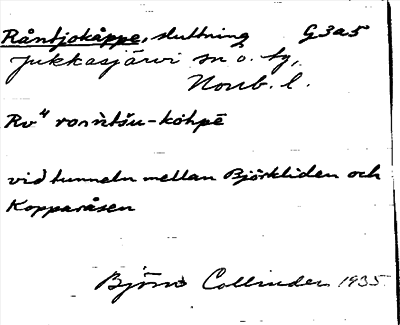 Råntjokåppe, sluttning G3a5
Jukkasjärvi sn o. tg,
Norrb. l.
Rv⁴ roǹtšu-kohpē
vid tunneln mellan Björkliden och
Kopparåsen
Björn Collinder 1935